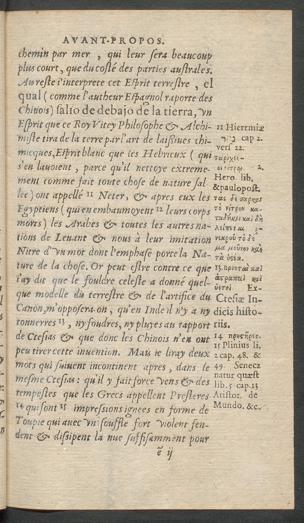 AVANT-PROPOS.
chemin par mer, qui leur sera beaucoup
plus court, que du costé des parties australes.
Au reste i'interprete cet Esprit terrestre, el
qual (comme l'autheur Espagnol raporte des
Chinois) salio de debajo de la tierra, vn
Esprit que ce Roy Vitey Philosophe & Alchi-
miste tira de la terre par l'art de laissiues chi-
micques, Esprit blanc que les Hebrieux (qui
s'en lauoient, parce qu'il nettoye extreme-
ment comme fait toute chose de nature sal-
lée) ont appellé 11 Neter, & apres eux les
Egyptiens (qui en embaumoyent 12 leurs corps
morts) les Arabes & toutes les autres na-
tions de Leuant & nous à leur imitation
Nitre d'vn mot dont l'emphase porte la Na-
ture de la chose. Or peut estre contre ce que
i'ay dit que le fouldre celeste a donné quel-
que modelle du terrestre & de l'artifice du
Canon, m'opposera on, qu'en Inde il n'y a ny
tonnerres 13, ny foudres, ny pluyes au rapport
de Ctesias & que donc les Chinois n'en ont
peu tirer cette inuention. Mais ie liray deux
mots qui suiuent incontinent apres, dans le
mesme Ctesias: qu'il y fait force vens & des
tempestes que les Grecs appellent Presteres
14 qui sont 15 impressions ignees en forme de
Toupie qui auec vn souffle fort violent fen-
dent & dissipent la nue suffisamment pour
ē ij
11 Hieremiæ
cap 2.
vers. 22.
12
Hero. lib.
& paulopost.
Ex
Ctesiæ In-
dicis histo-
riis.
15 Plinius li.
2 cap. 48. &
49 Seneca
natur quæst
lib. 5 cap. 13
Aristot. de
Mundo, &c.